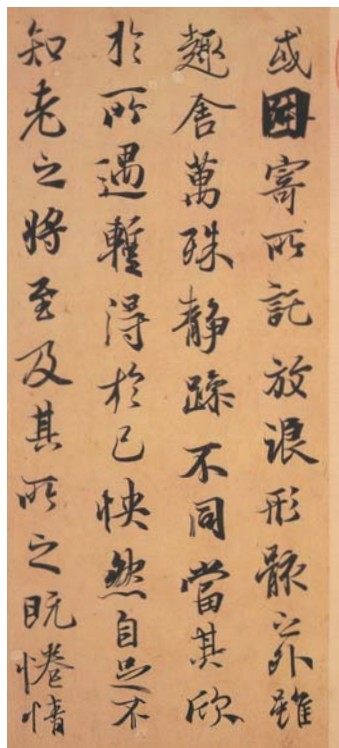 或因寄所託放浪形骸之外雖
趣舍萬殊静躁不同當其欣
於所遇蹔得於己怏然自足不
知老之將至及其所之既惓情